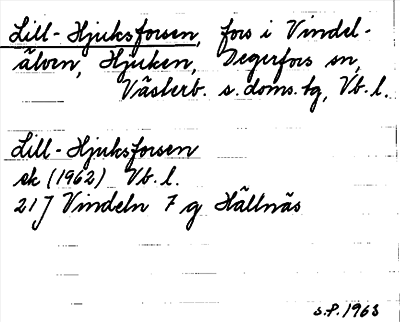 Lill-Hjuksforsen, fors i Vindel-
älven, Hjuken, Degerfors sn,
Västerb. s. doms. tg, Vb. l.
Lill-Hjuksforsen
ek (1962) Vb. l.
21J Vindeln 7 g Hällnäs
S.P. 1963